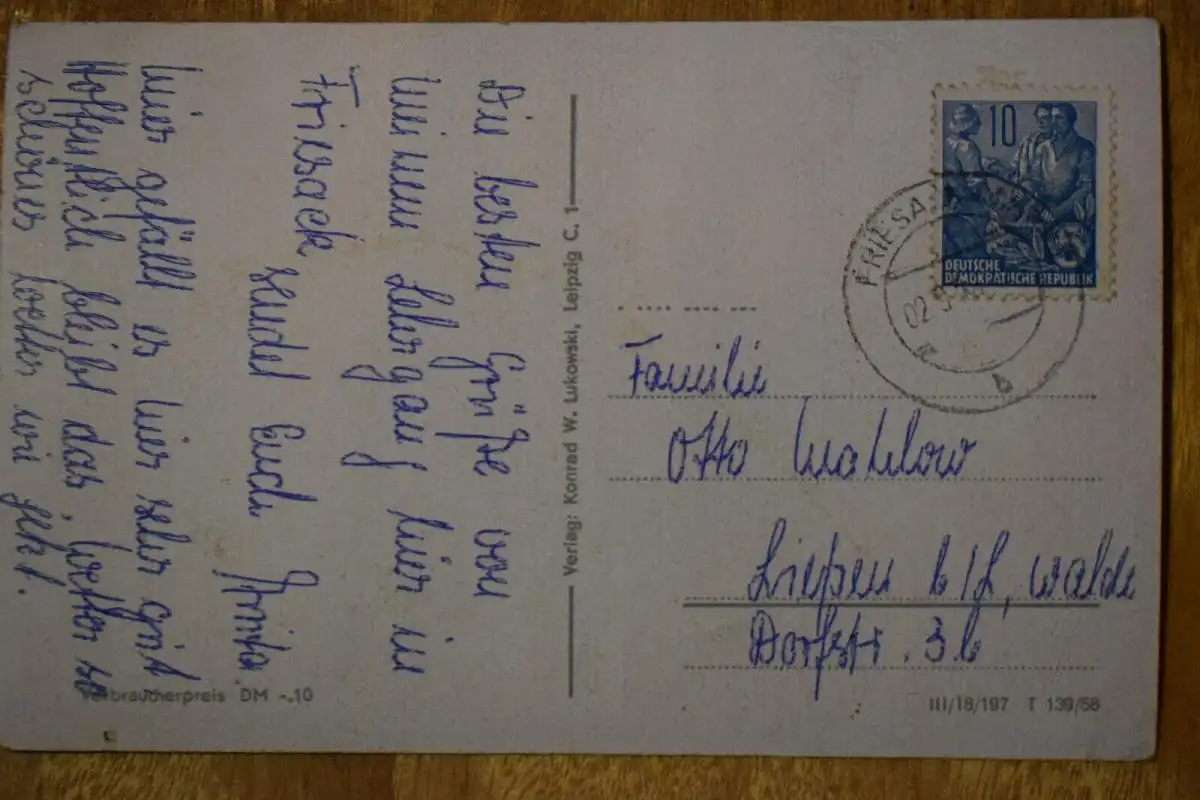 Die besten Grüße von
meinem Lehrgang hier in
Friesack
sendet Euch
Mir gefällt es hier sehr gut.
Hoffentlich bleibt das Wetter so
schönes wie jetzt.
Verbraucherpreis DM -.10
Verlag: Konrad W. Lukowski, Leipzig C. 1
10
DEUTSCHE
DEMOKRATISCHE REPUBLIK
FRIESA
02
b
Familie
Otto Mahlow
Liepen b/H, walde
Dorfstr. 3b
III/18/197 T 139/58